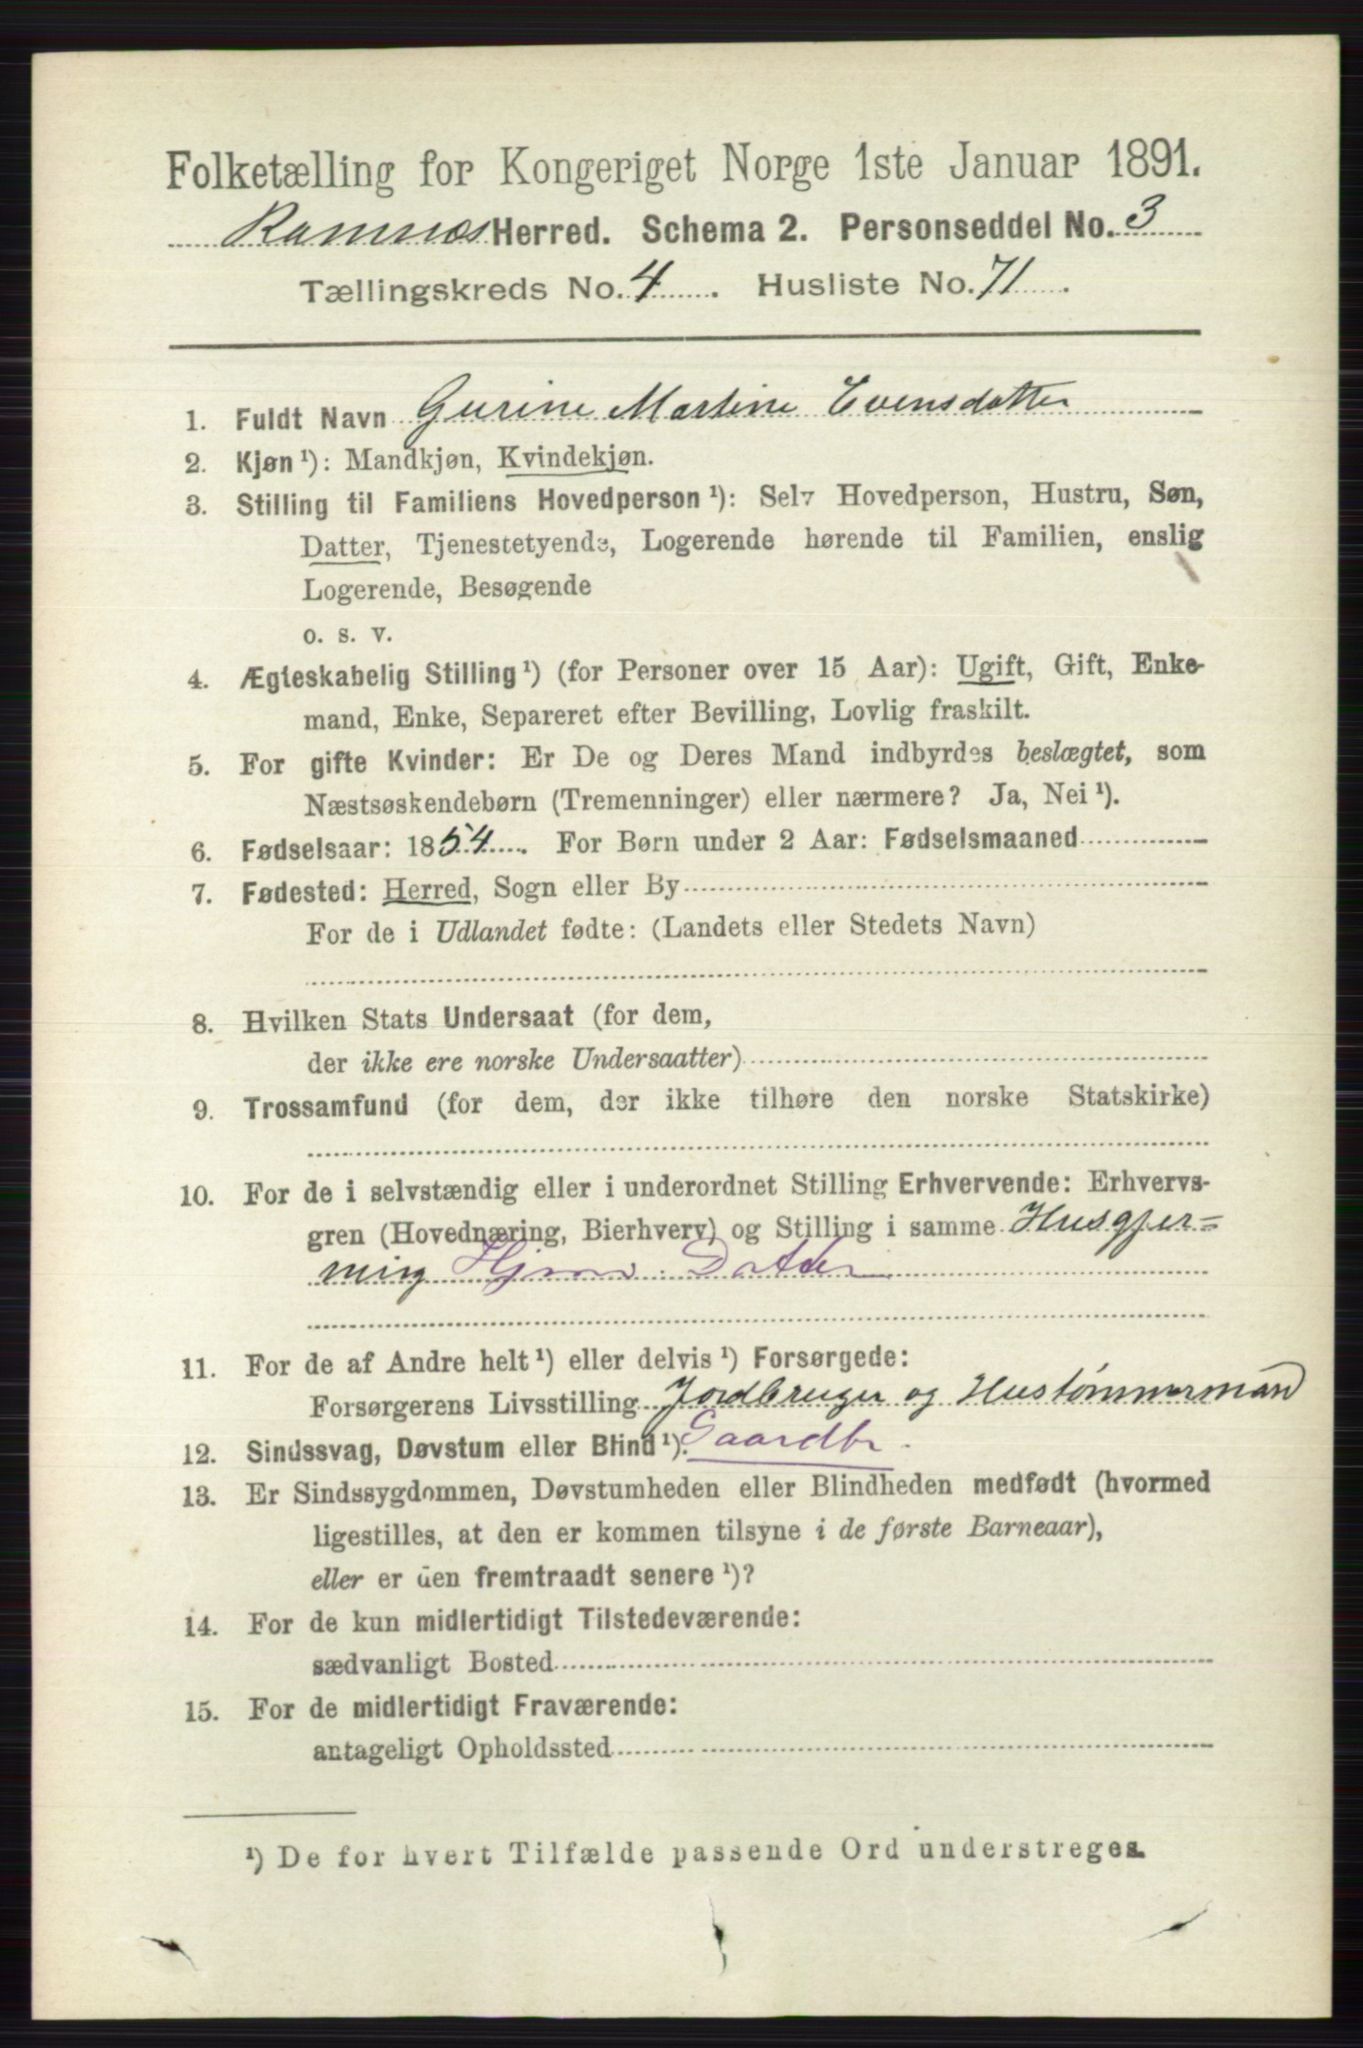 Folketælling for Kongeriget Norge 1ste Januar 1891.
Ramnæs Herred. Schema 2. Personseddel No. 3
Tællingskreds No. 4. Husliste No. 71.
1. Fuldt Navn Gurine Martine Evensdatter
2. Kjøn ¹): Mandkjøn, Kvindekjøn.
3. Stilling til Familiens Hovedperson ¹): Selv Hovedperson, Hustru, Søn,
Datter, Tjenestetyende, Logerende hørende til Familien, enslig
Logerende, Besøgende
o. s. v.
4. Ægteskabelig Stilling ¹) (for Personer over 15 Aar): Ugift, Gift, Enke-
mand, Enke, Separeret efter Bevilling, Lovlig fraskilt.
5. For gifte Kvinder: Er De og Deres Mand indbyrdes beslægtet, som
Næstsøskendebørn (Tremenninger) eller nærmere? Ja, Nei ¹).
6. Fødselsaar: 1854. For Børn under 2 Aar: Fødselsmaaned
7. Fødested: Herred, Sogn eller By
For de i Udlandet fødte: (Landets eller Stedets Navn)
8. Hvilken Stats Undersaat (for dem,
der ikke ere norske Undersaatter)
9. Trossamfund (for dem, der ikke tilhøre den norske Statskirke)
10. For de i selvstændig eller i underordnet Stilling Erhvervende: Erhvervs-
gren (Hovednæring, Bierhverv) og Stilling i samme Husgjer=
ning Datter
11. For de af Andre helt ¹) eller delvis ¹) Forsørgede:
Forsørgerens Livsstilling Jordbruger og Hustømmermand
12. Sindssvag, Døvstum eller Blind ¹). Gaardbr.
13. Er Sindssygdommen, Døvstumheden eller Blindheden medfødt (hvormed
ligestilles, at den er kommen tilsyne i de første Barneaar),
eller er den fremtraadt senere ¹)?
14. For de kun midlertidigt Tilstedeværende:
sædvanligt Bosted
15. For de midlertidigt Fraværende:
antageligt Opholdssted
¹) De for hvert Tilfælde passende Ord understreges.